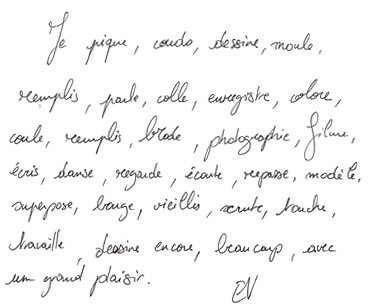 Je pique, couds, dessine, moule,
remplis, parle, colle, enregistre, colore,
coule, remplis, brode, photographie, filme,
écris, danse, regarde, écoute, repasse, modèle,
superpose, bouge, vieillis, scrute, touche,
travaille, dessine encore, beaucoup, avec
un grand plaisir.